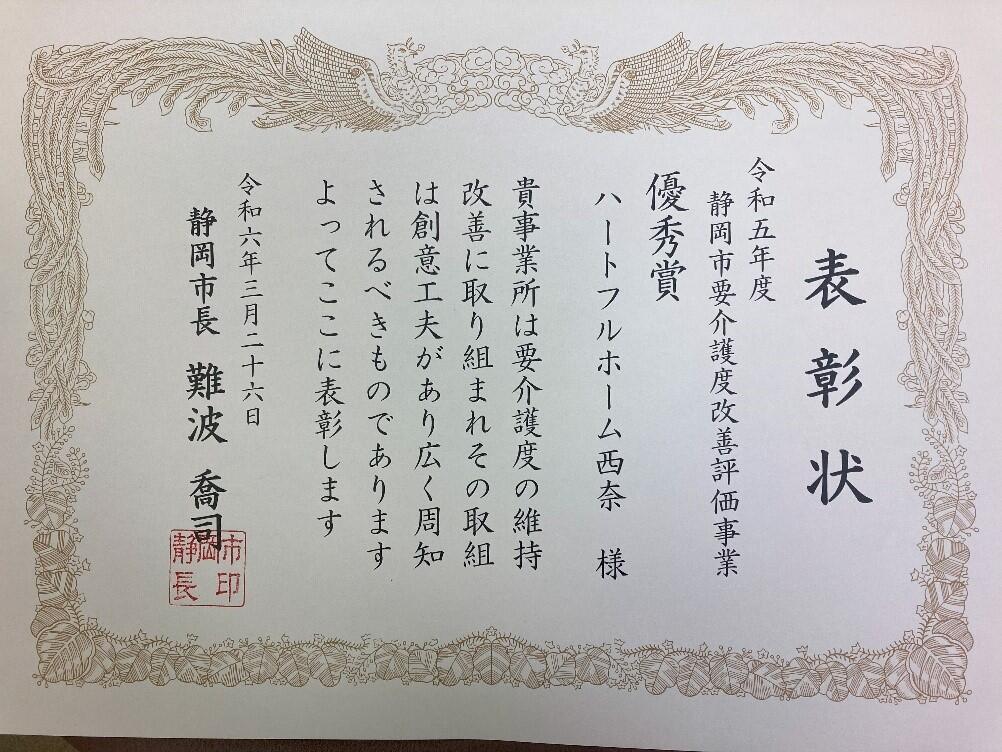 表彰状
令和五年度
静岡市要介護度改善評価事業
優秀賞
ハートフルホーム西奈 様
貴事業所は要介護度の維持
改善に取り組まれその取組
は創意工夫があり広く周知
されるべきものであります
よってここに表彰します
令和六年三月二十六日
静岡市長 難波 喬司
静岡市長印